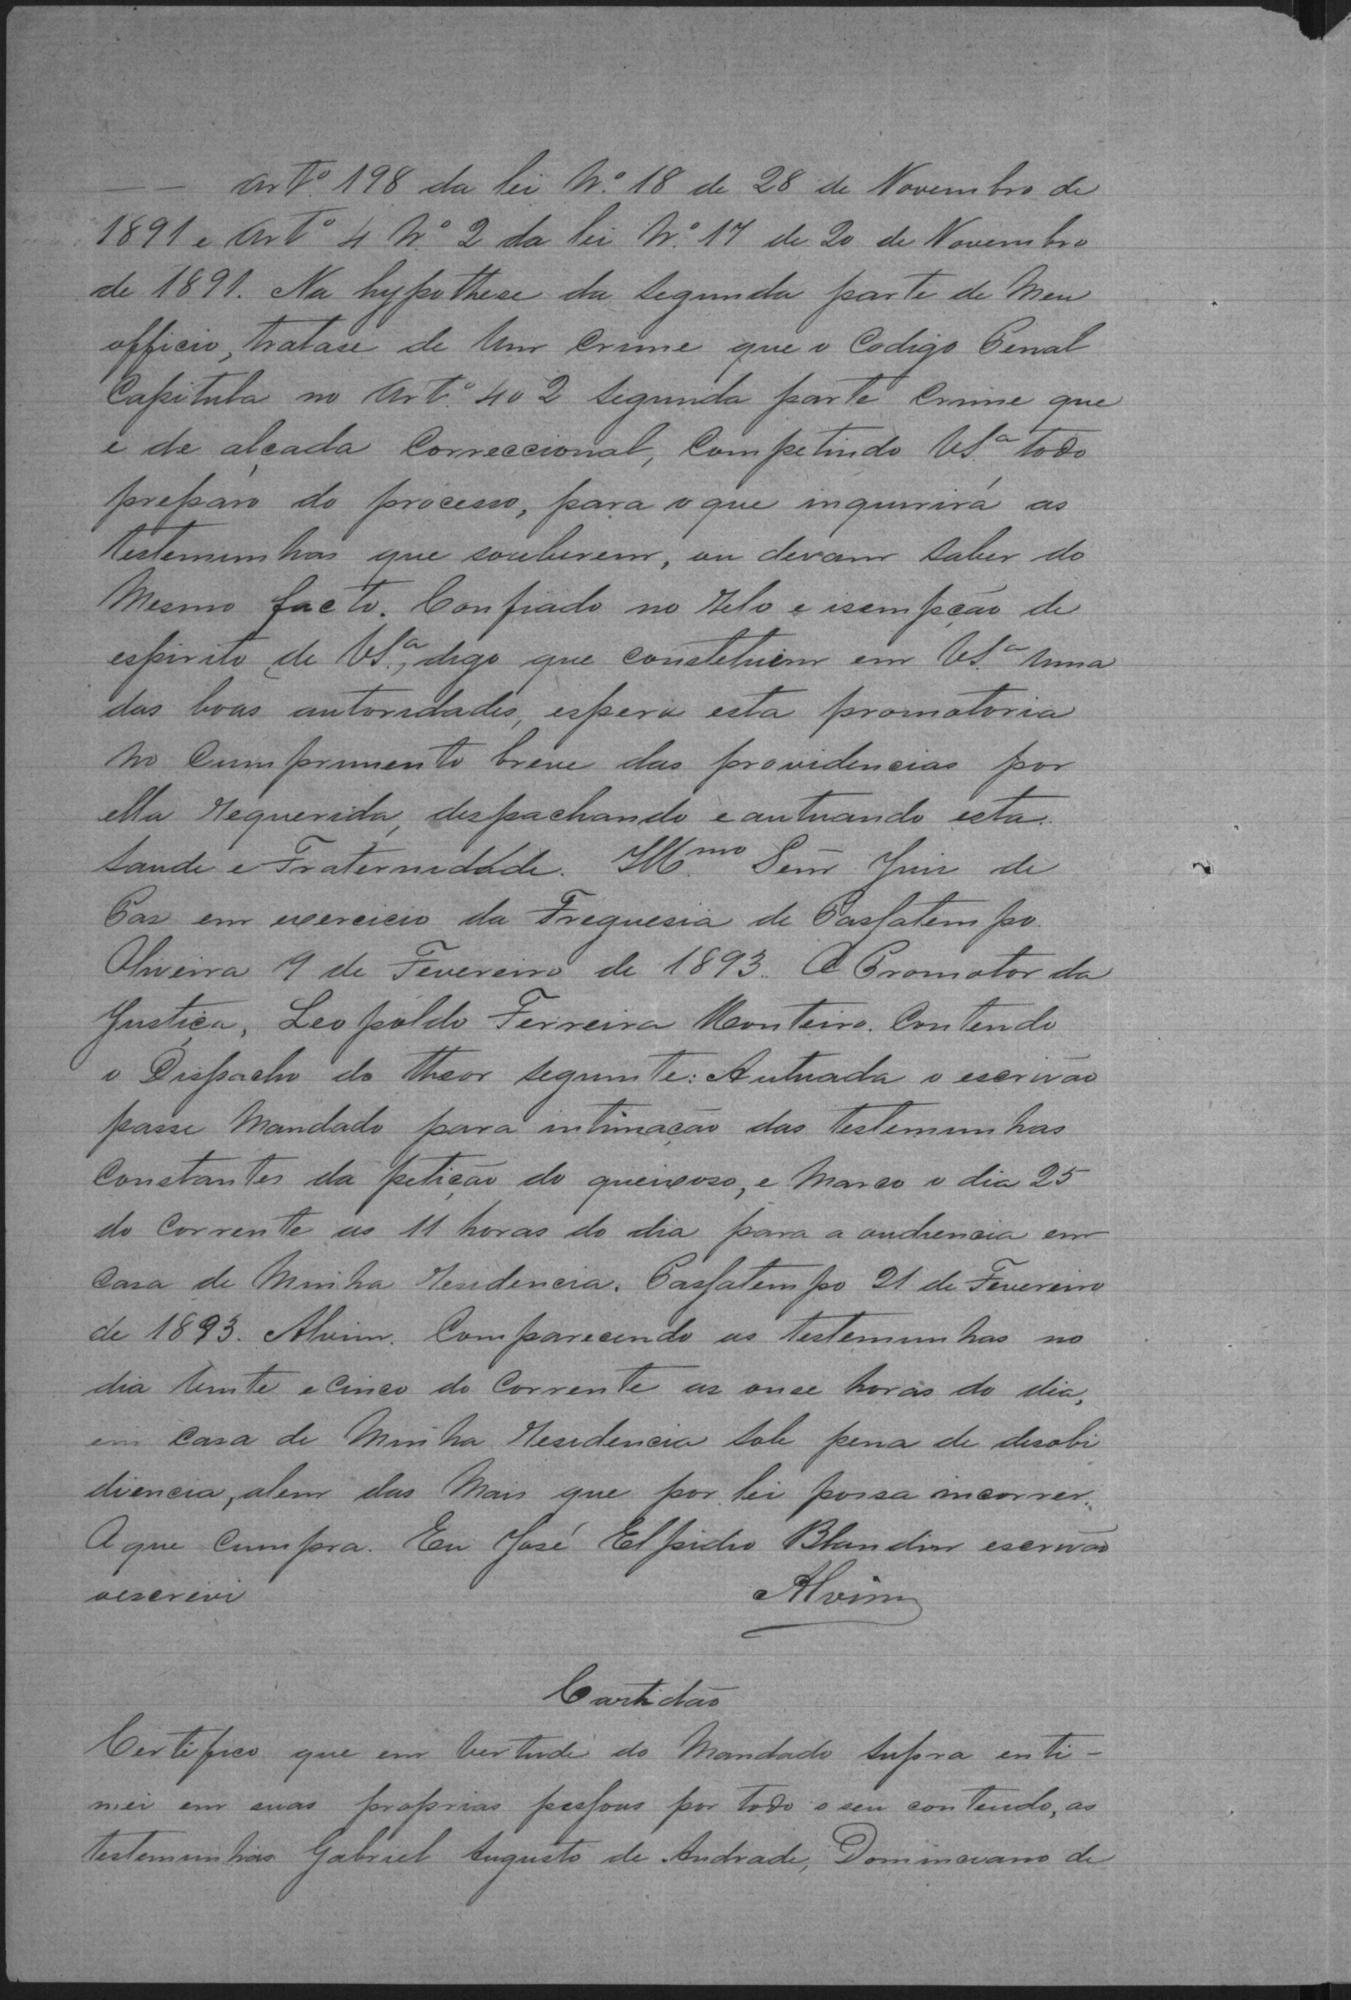 — — Artº 198 da lei Nº 18 de 28 de Novembro de
1891 e Artº 4 Nº 2 da lei Nº 17 de 20 de Novembro
de 1891. Na hypothese da segunda parte de Meu
officio, tratase de Um Crime que o Codigo Penal
Capitula no Artº 402 segunda parte Crime que
é de alçada Correccional, Competindo VSª todo
preparo do processo, para o que inquirirá as
testemunhas que souberem, ou devam saber do
Mesmo facto. Confiado no zelo e isempção de
espirito de VSª, digo que constetuem em VSª Uma
das boas autoridades, espera esta promotoria
No Cumprimento breve das providencias por
ella requerida, despachando e autuando esta.
Saude e Fraternidade. Illmo Señr Juiz de
Paz em exercicio da Freguesia de Passatempo.
Oliveira 9 de Fevereiro de 1893. O Promotor da
Justiça, Leopoldo Ferreira Monteiro. Contendo
o Despacho do theor seguinte: Autuada o escrivão
passe Mandado para intimação das testemunhas
Constantes da petição do queixoso, e Marco o dia 25
do Corrente as 11 horas do dia para a audiencia em
Casa de Minha residencia. Passatempo 21 de Fevereiro
de 1893. Alvim. Comparecendo as testemunhas no
dia Vinte e Cinco do Corrente as onse horas do dia,
em Casa de Minha residencia sob pena de desobi
diencia, alem das Mais que por lei possa incorrer.
O que Cumpra. Eu José Elpidio Blandim escrivão
oescrevi Alvim
Certidão
Certifico que em Vertude do Mandado supra enti-
mei em suas proprias pessoas por todo o seu contendo, as
testemunhas Gabriel Augusto de Andrade, Domiciano de